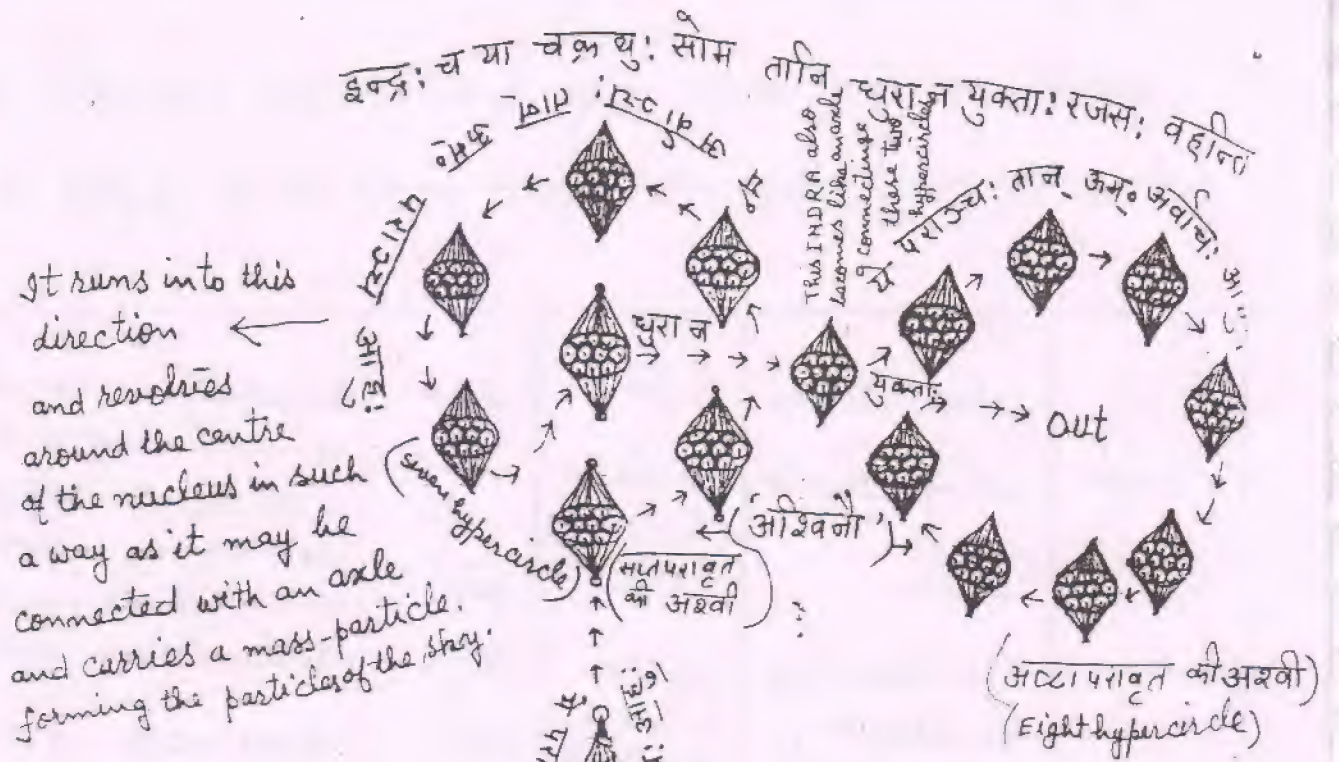 इन्द्रः च या चक्रथुः सोम तानि धुरा न युक्ताः रजसः वहन्ति
ये अर्वाञ्चः तान् ऊम्॰
पराचः आहुः
ये पराञ्चः तान् ऊम्॰ अर्वाचः आहुः
This INDRA also
becomes like an axle
connectinge
these two
hypercircles
It runs into this
direction
and revolvies
around the centre
of the nucleus in such
a way as it may be
connected with an axle
and carries a mass-particle.
forming the particles of the sky.
धुरा न
युक्ताः
out
(seven hypercircle)
(सप्त परावृत
की अश्वी)
('अश्विनौ')
(अष्टा परावृत की अश्वी)
(Eight hypercircle)